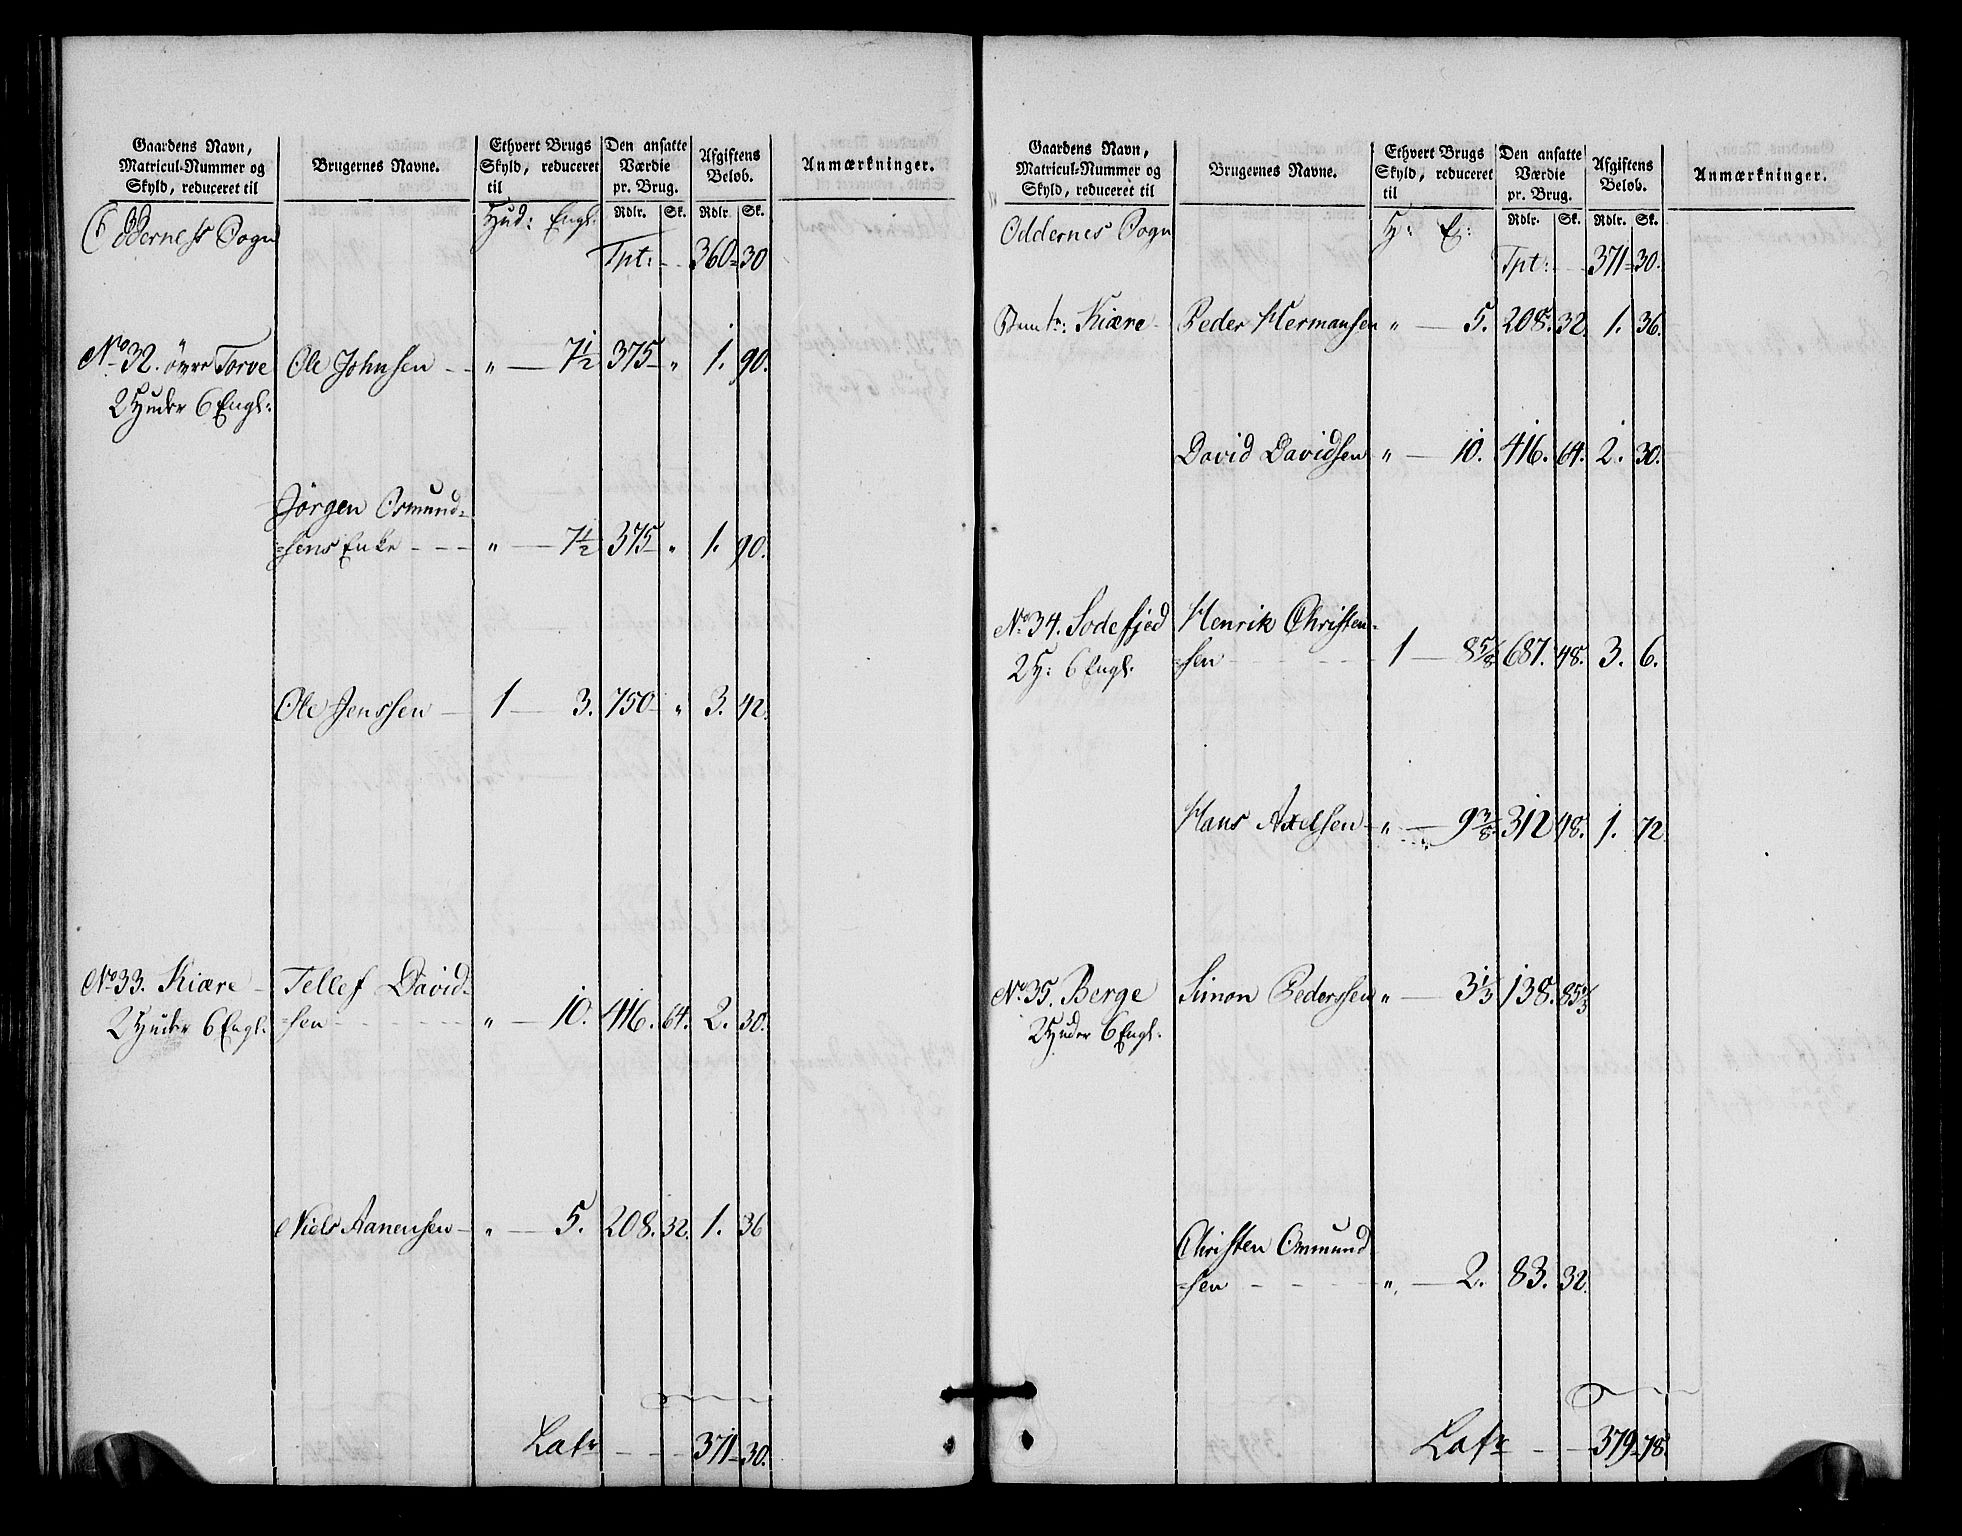 Gaardens Navn, Matricul-Nummer og Skyld, reduceret til | Brugernes Navne. | Ethvert Brugs Skyld, reduceret til | Den ansatte Værdie pr. Brug. | Afgiftens Beløb. | Anmærkninger.
Rdlr. | Sk. | Rdlr. | Sk.
Oddernes Sogn | Hud: Engl:
Tpt: - - 360 = 30
No 32. övre Torve | Ole Johnsen - - | " — 7½ | 375 - " | 1. 90.
2 Huder 6 Engl:
Jørgen Osmund=
=sens Enke - - - | " — 7½ | 375 - " | 1. 90.
Ole Jenssen — | 1 — 3. | 750 - " | 3. 42.
No 33. Kiære - | Tellef David=
2 Huder 6 Engl. | =sen - - - | " — 10. | 416. 64. | 2. 30.
Niels Aanensen — | " — 5. | 208. 32. | 1. 36
Lats - - - 371 = 30.
Gaardens Navn, Matricul-Nummer og Skyld, reduceret til | Brugernes Navne. | Ethvert Brugs Skyld, reduceret til | Den ansatte Værdie pr. Brug. | Afgiftens Beløb. | Anmærkninger.
Rdlr. | Sk. | Rdlr. | Sk.
Oddernes Sogn | H: E:
Tpt: - - 371 = 30.
Kiære - | Peder Hermansen | " — 5. | 208. 32. | 1. 36.
David Davidsen | " — 10. | 416. 64. | 2. 30.
No 34. Sodefjed | Henrik Christen=
2 H: 6 Engl. | =sen - - - | 1 — 8 5/8 | 687. 48. | 3. 6.
Hans Axelsen - | " — 9 3/8 | 312 48. | 1. 72
No 35. Berge | Simon Pederssen | " — 3 1/3 | 138. 85 1/3
2 Huder 6 Engl.
Christen Omund
=sen - - - | " — 2. | 83. 32.
Lats - - 379 = 78.